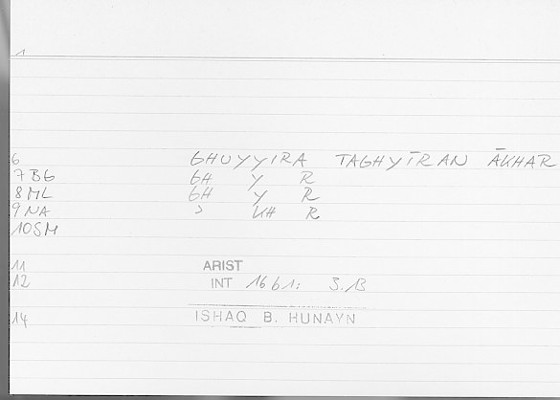 1
6 GHUYYIRA TAGHYĪRAN ĀKHAR
7 BG GH Y R
8 ML GH Y R
9 NA ɔ KH R
10 SM
11 ARIST
12 INT 16 b 1: 3.13
14 ISHAQ B. HUNAYN